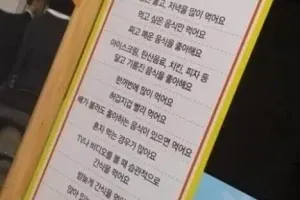 굶고, 저녁을 많이 먹어요
먹고 싶은 음식만 먹어요
짜고 매운 음식을 좋아해요
아이스크림, 탄산음료, 치킨, 피자 등
달고 기름진 음식을 좋아해요
한꺼번에 많이 먹어요
허겁지겁 빨리 먹어요
배가 불러도 좋아하는 음식이 있으면 먹어요
혼자 먹는 경우가 많아요
TV나 비디오를 볼 때 습관적으로
간식을 먹어요
밤늦게 간식을 먹어요